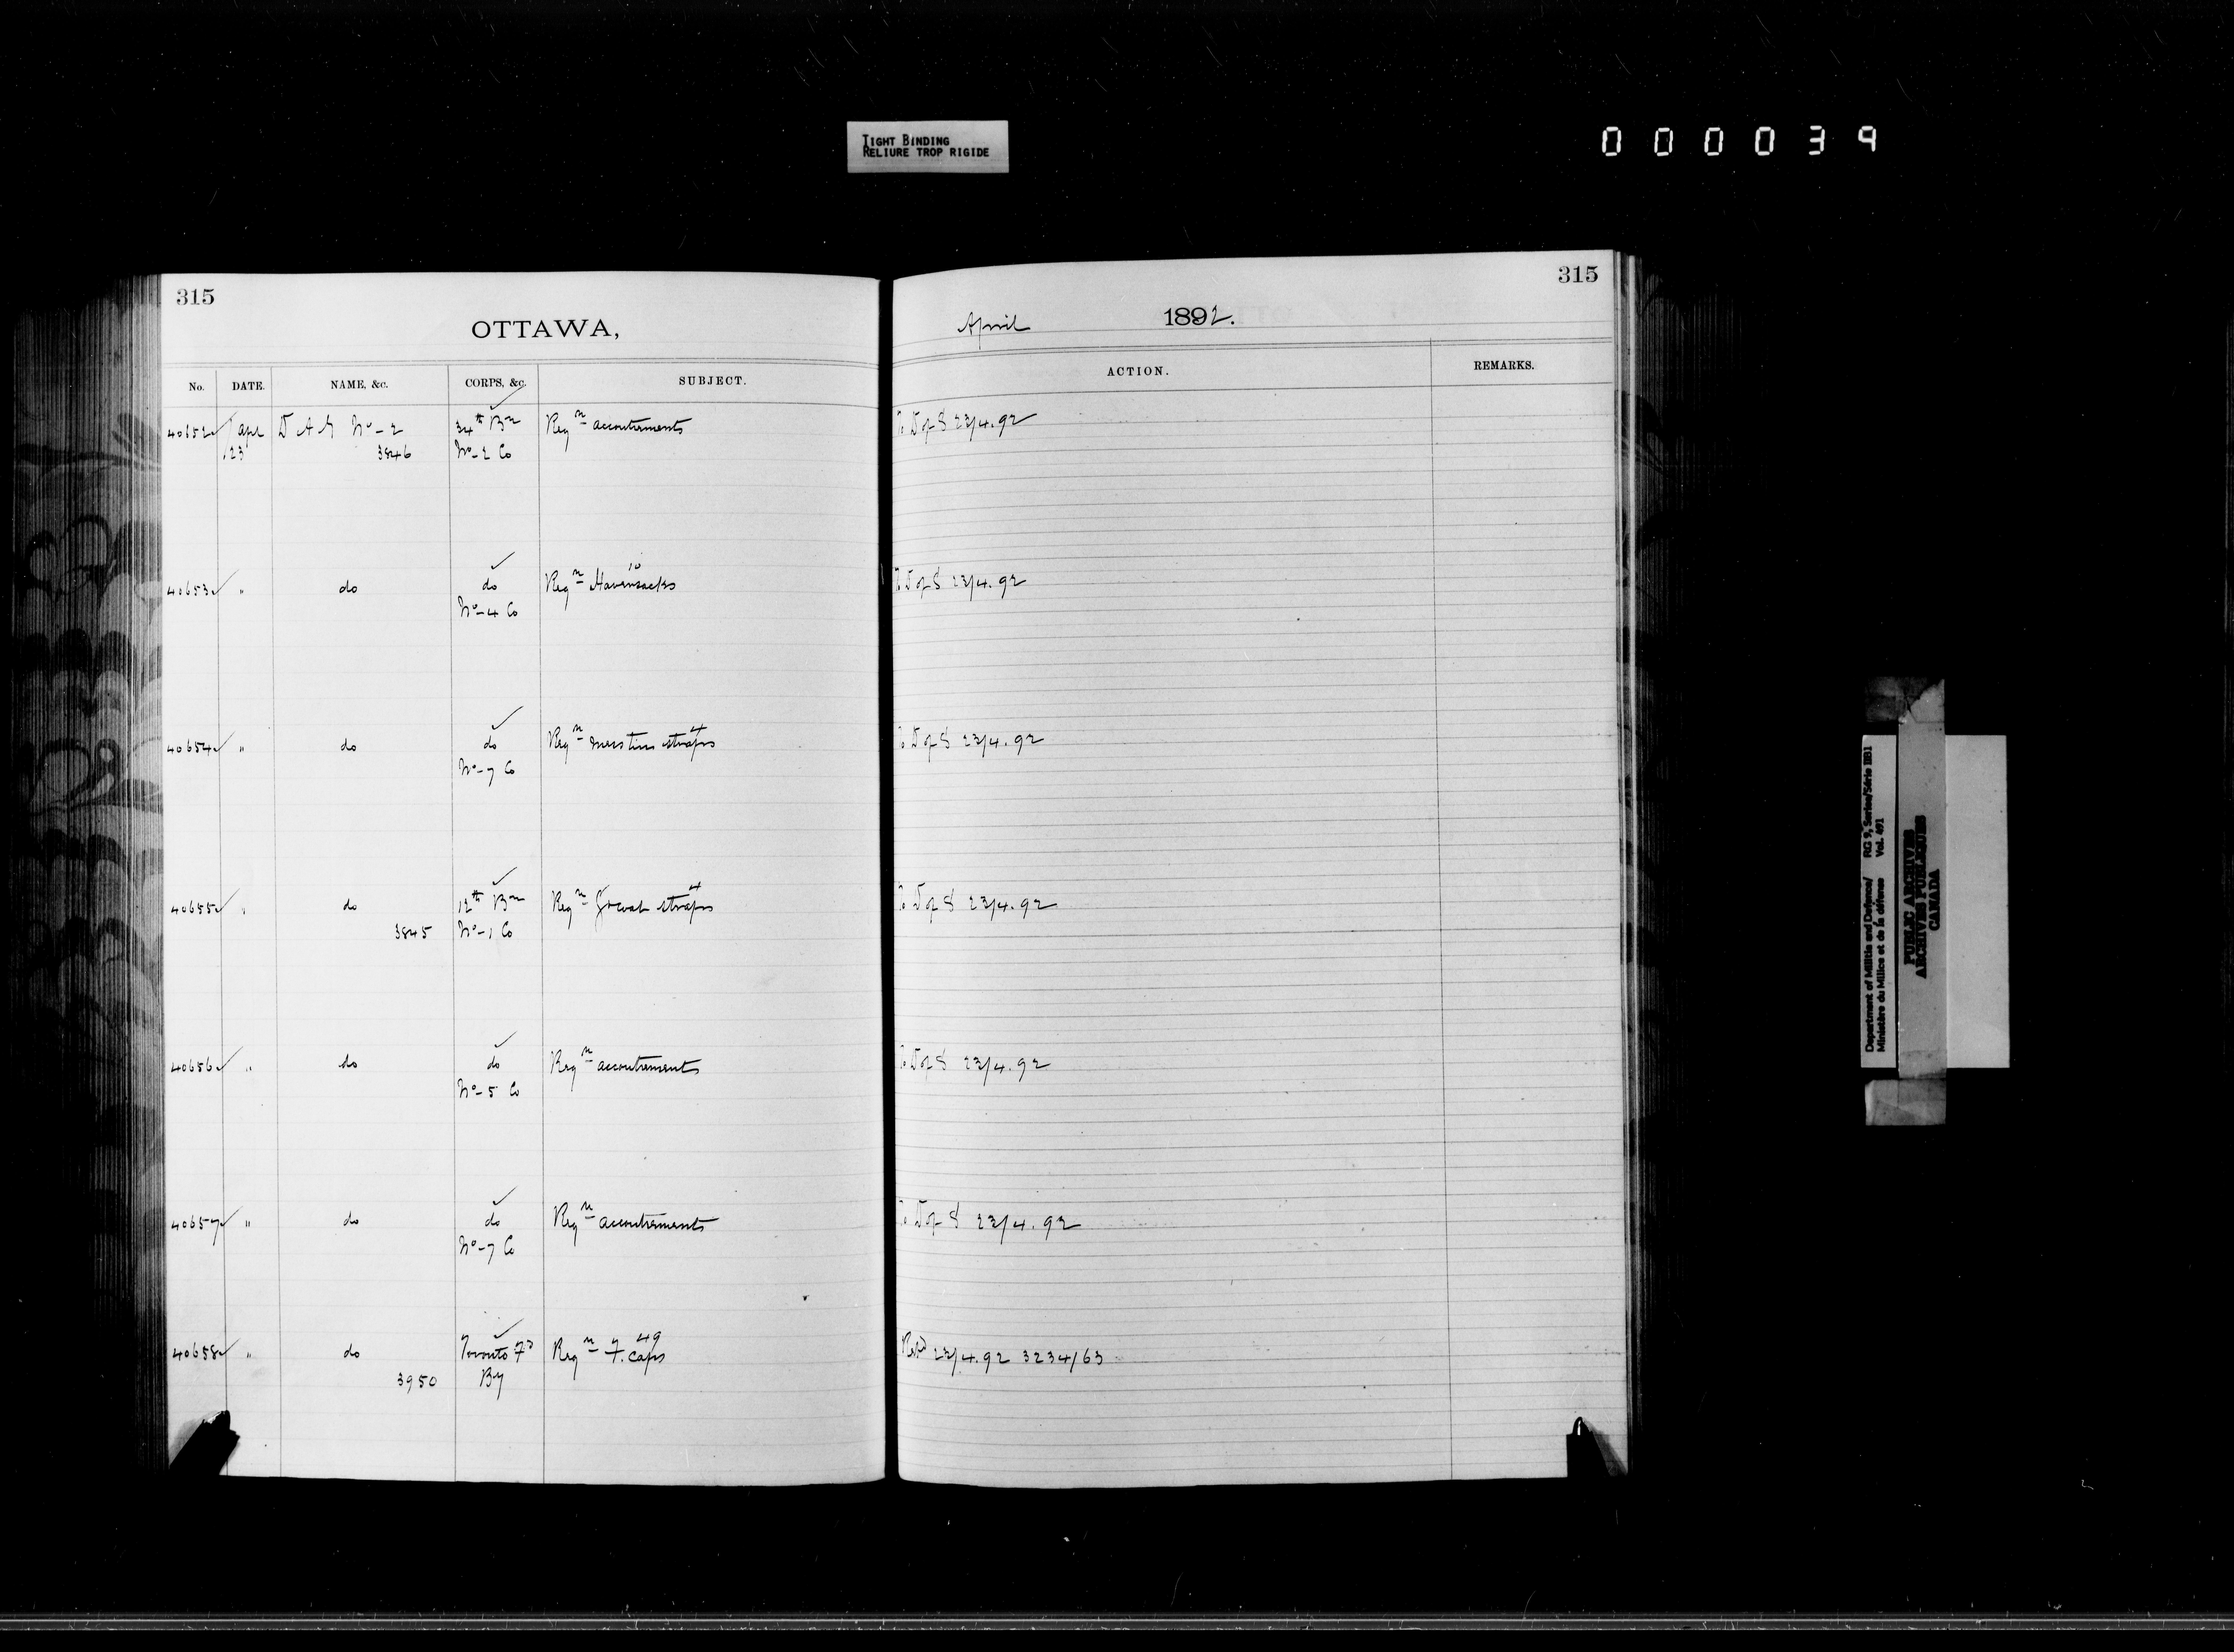 TIGHT BINDING
RELIURE TROP RIGIDE
000039
315
OTTAWA,
No. DATE. NAME, &c. CORPS, &c. SUBJECT.
40652 Apr D A G No- 2 34th Bn Reqn accoutrements
23 3846 No- 2 Co
10
40653 " do do Reqn Haversacks
No- 4 Co
4
40654 " do do Reqn mess tin straps
No- 7 Co
4
40655 " do 12th Bn Reqn Gt coat straps
3845 No- 1 Co
40656 " do do Reqn accoutrements
No- 5 Co
40657 " do do Reqn accoutrements
No- 7 Co
49
40658 " do Toronto Fd Reqn F. Caps
3950 By
315
April 1892.
ACTION. REMARKS.
To D of S 23/4.92
To D of S 23/4.92
To D of S 23/4.92
To D of S 23/4.92
To D of S 23/4.92
To D of S 23/4.92
23/4.92 3234/63
Department of Militia and Defence/ RG 9, Series/Série IIB1
Ministère du Milice et de la défense Vol. 491
PUBLIC ARCHIVES
ARCHIVES PUBLIQUES
CANADA